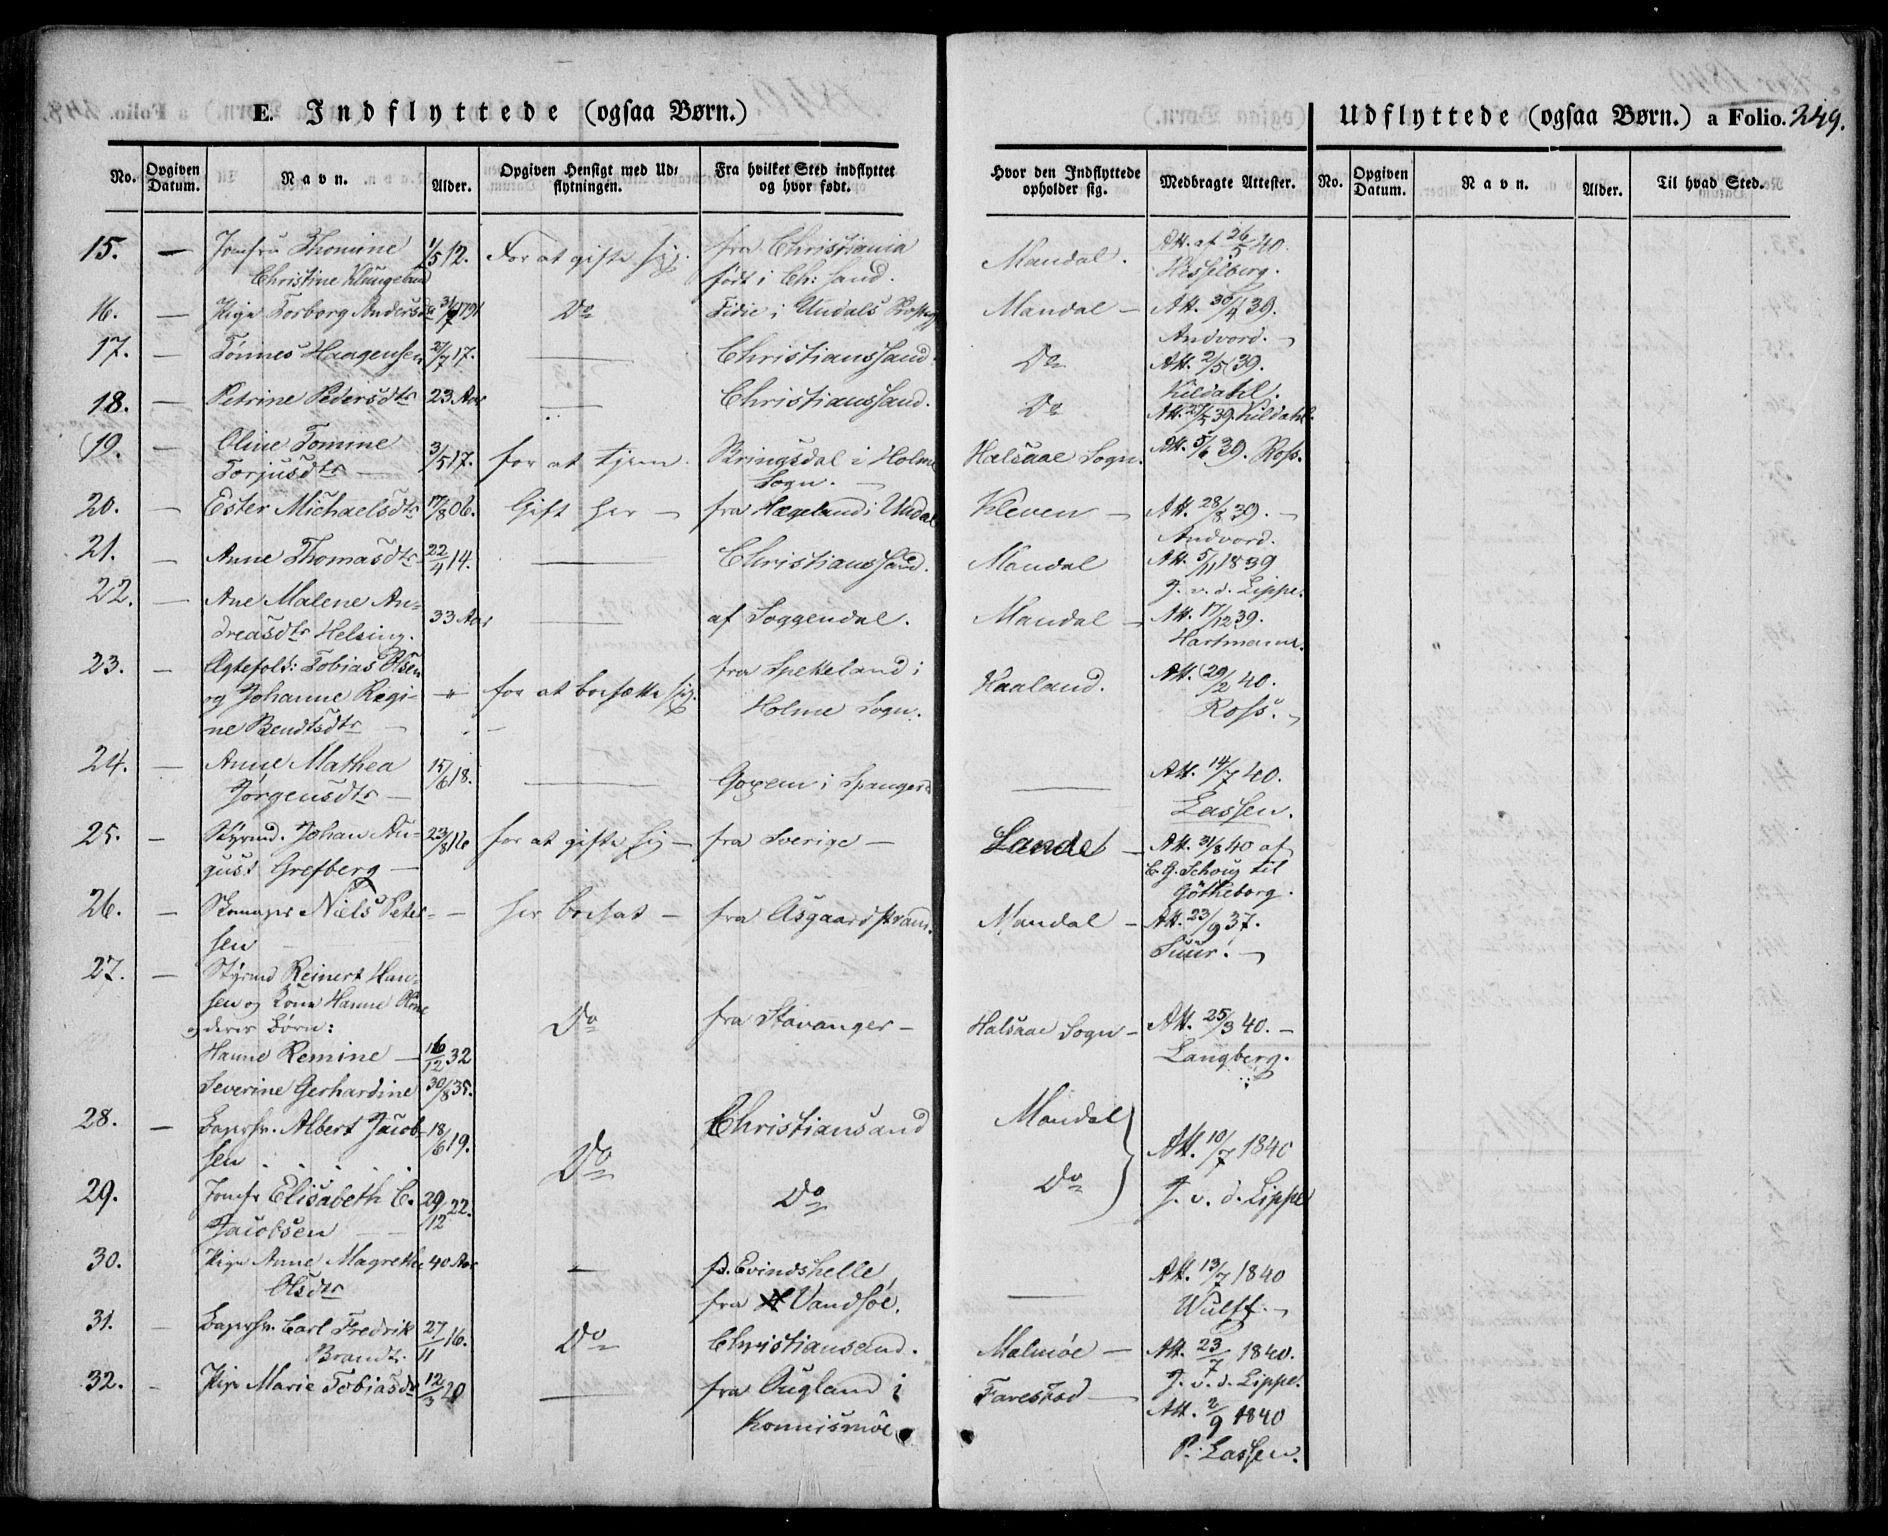 E. Indflyttede (ogsaa Børn.)
Udflyttede (ogsaa Børn.) a Folio. 249.
No. Opgiven Datum. Navn. Alder. Opgiven Hensigt med Udflytningen. Fra hvilket Sted indflyttet og hvor født. Hvor den Indflyttede opholder sig. Medbragte Attester. No. Opgiven Datum. Navn. Alder. Til hvad Sted.
15. — Jomfru Thomine 1/5 12. For at gifte sig. fra Christiania Mandal. Att. af 26/5 40.
Christine Klungeland født i Ch: Sand. Hesselberg.
16. — Pige Torborg Andersdtr 1791 Do i Undals Mandal — Att. 30/4 39.
Andvord.
17. — Tønnes Haagensen 2/7 17. — Christianssand. Do Att. 2/5 39.
Kildahl.
18. — Petrine Pedersdtr 23 Aar — Christianssand. Do Att. 27/5 39. Kildahl.
19. — Oline Tomine 3/5 17. for at tjene. Bringsdal i Holme Halsaae Sogn. Att. 5/6 39. Ross.
Torjusdtr — Sogn. —
20. — Ester Michaelsdtr 17/8 06. Gift her — fra Hægeland i Undal Kleven — Att. 28/8 39. —
Andvord.
21. — Anne Thomasdtr 22/4 14. — Christianssand. Mandal Att. 5/11 1839
J. v. d. Lippe.
22. — Ane Malene An- 33 Aar — af Soggendal. Mandal — Att. 17/12 39.
dreasdtr Helsing. Hartmann.
23. — Ægtefolk: Tobias Olsen fra Spetteland i Att. 29/2 40.
og Johanne Regi- — for at bosætte sig. Holme Sogn. Haaland. Ross.
ne Bendtsdtr —
24. — Anne Mathea 15/6 18. — i Spangereid — Att. 14/7 40.
Jørgensdtr — Lassen.
25. — Styrmd. Johan Au- 23/8 16 for at gifte sig — fra Sverige — Landet — Att. 31/8 40 af
gust Grefberg — C. G. Schoug til
Götheborg.
26. — Skomager Niels Peter- — her bosat — fra Aasgaardstrand. Mandal — Att. 23/9 37.
sen
27. — Styrmd Reinert Han-
sen og Kone Hanne Do fra Stavanger — Halsaae Sogn — Att. 25/3 40. —
og deres Børn: Langberg.
Hanne Remine — 16/12 32
Severine Gerhardine 30/8 35.
28. — Albert Jacob- 18/6 19. Do Christiansand Mandal Att. 10/7 1840
sen
29. Jomfr Elisabeth C. 29/12 22. Do Do J. v. d. Lippe
Jacobsen
30. Pige Anne Magrethe 40 Aar — f. Evindshelle — Att. 13/7 1840
Olsdtr fra Vandsøe. Wulff. —
31. — Carl Fredrik 27/11 16. Do Christiansand. Malmøe — Att. 23/7 1840.
Brandt. J. v. d. Lippe.
32. — Pige Marie Tobiasdr 12/3 20 — fra Ougland i Farestad — Att. 2/9 1840
Konnismøe P. Lassen.